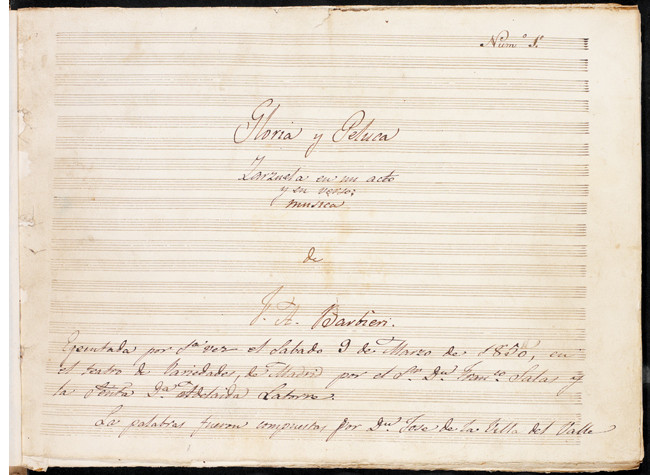 Num.º 1.º
Gloria y Peluca
Zarzuela en un acto
y en verso;
musica
de
F. A. Barbieri.
Ejecutada por 1.ª vez el Sabado 9 de Marzo de 1850, en
el teatro de Variedades, de Madrid por el Sr. Dn. Franco. Salas y
la Señta. Da. Adelaida Latorre.
Las palabras fueron compuestas por Dn. Jose de la Villa del Valle